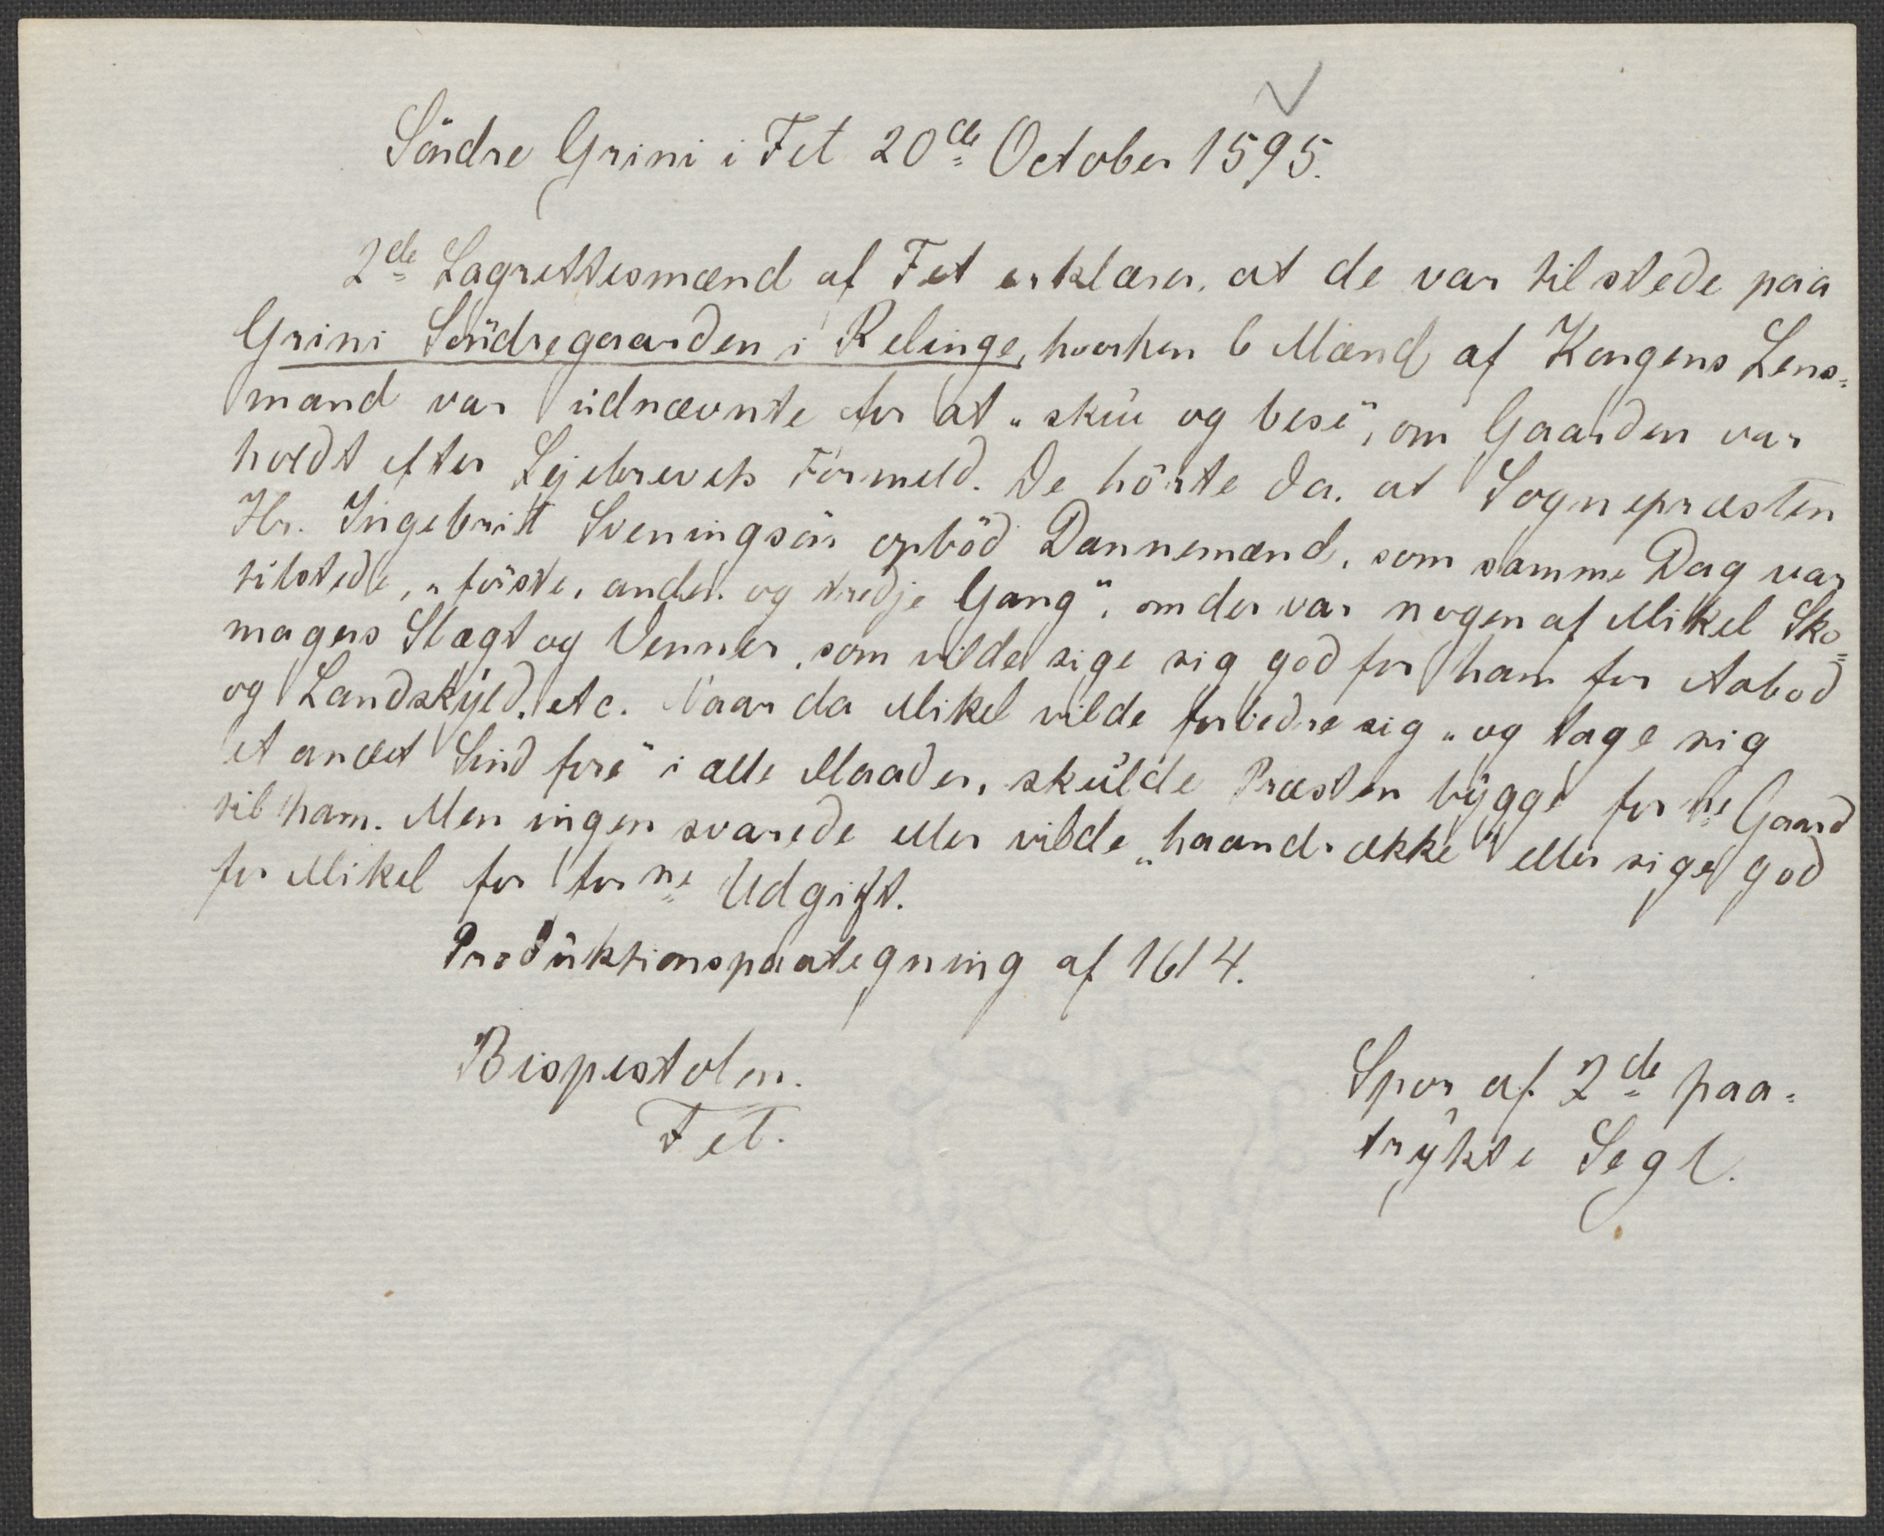 Söndre Grini i Fet 20de October 1595.
2de Lagrettesmænd af Fet erklærer, at de var tilstede paa
Grini Söndregaarden i Relinge, hvorhen 6 Mænd af Kongens Lens-
mand var udnævnte for at „skue og bese“, om Gaarden var
holdt efter Lejebrevets Formeld. De hörte da, at Sognepræsten
Hr. Ingebritt Sveningsön opböd Dannemænd, som samme Dag var
tilstede, „förste, anden og tredje Gang“, om der var nogen af Mikel Sko-
magers Slægt og Venner, som vilde sige sig god for ham for Aabod
og Landskyld, etc. Naar da Mikel vilde forbedre sig „og tage sig
et andet Sind fore“ i alle Maader, skulde Præsten bygge forne Gaard
til ham. Men ingen svarede eller vilde „haandrække“ eller sige god
for Mikel for forne Udgift.
Produktionspaategning af 1614.
Bispestolen.
Fet.
Spor af 2de paa-
trykte Segl.